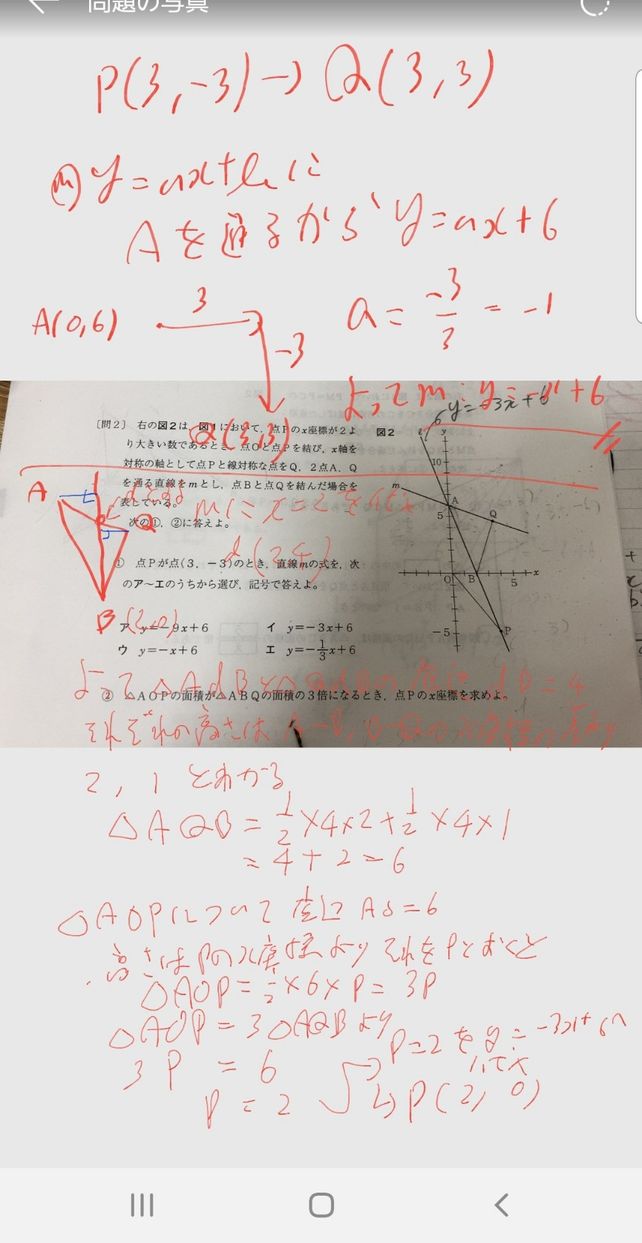 問題の写真
P(3,-3)→Q(3,3)
m) y=ax+bに
Aを通るから y=ax+6
A(0,6) 3 -3
a=-3/3=-1
よってm:y=-x+6
Q(3,3)
y=-3x+6
[問2] 右の図2は、図1において、点Pのx座標が2よ
り大きい数であるとき、点Oと点Pを結び、x軸を
対称の軸として点Pと線対称な点をQ、2点A、Q
を通る直線をmとし、点Bと点Qを結んだ場合を
表している。
次の①、②に答えよ。
図2
y
10
m
A
5
Q
O
B
5
x
-5
P
A
Q
B(2,0)
mにx=2を
d(2,4)
① 点Pが点(3, -3)のとき、直線mの式を、次
のア〜エのうちから選び、記号で答えよ。
ア y=-9x+6 イ y=-3x+6
ウ y=-x+6 エ y=-1/3x+6
② △AOPの面積が△ABQの面積の3倍になるとき、点Pのx座標を求めよ。
よって
それぞれの高さは
2, 1 とわかる
△AQB=1/2×4×2+1/2×4×1
=4+2=6
△AOPについて 底辺 AO=6
高さはPのx座標より それをPとおくと
△AOP=1/2×6×P=3P
△AOP=3△AQBより
3P=6
P=2
P=2をy=-3x+6へ
いれて
P(2,0)